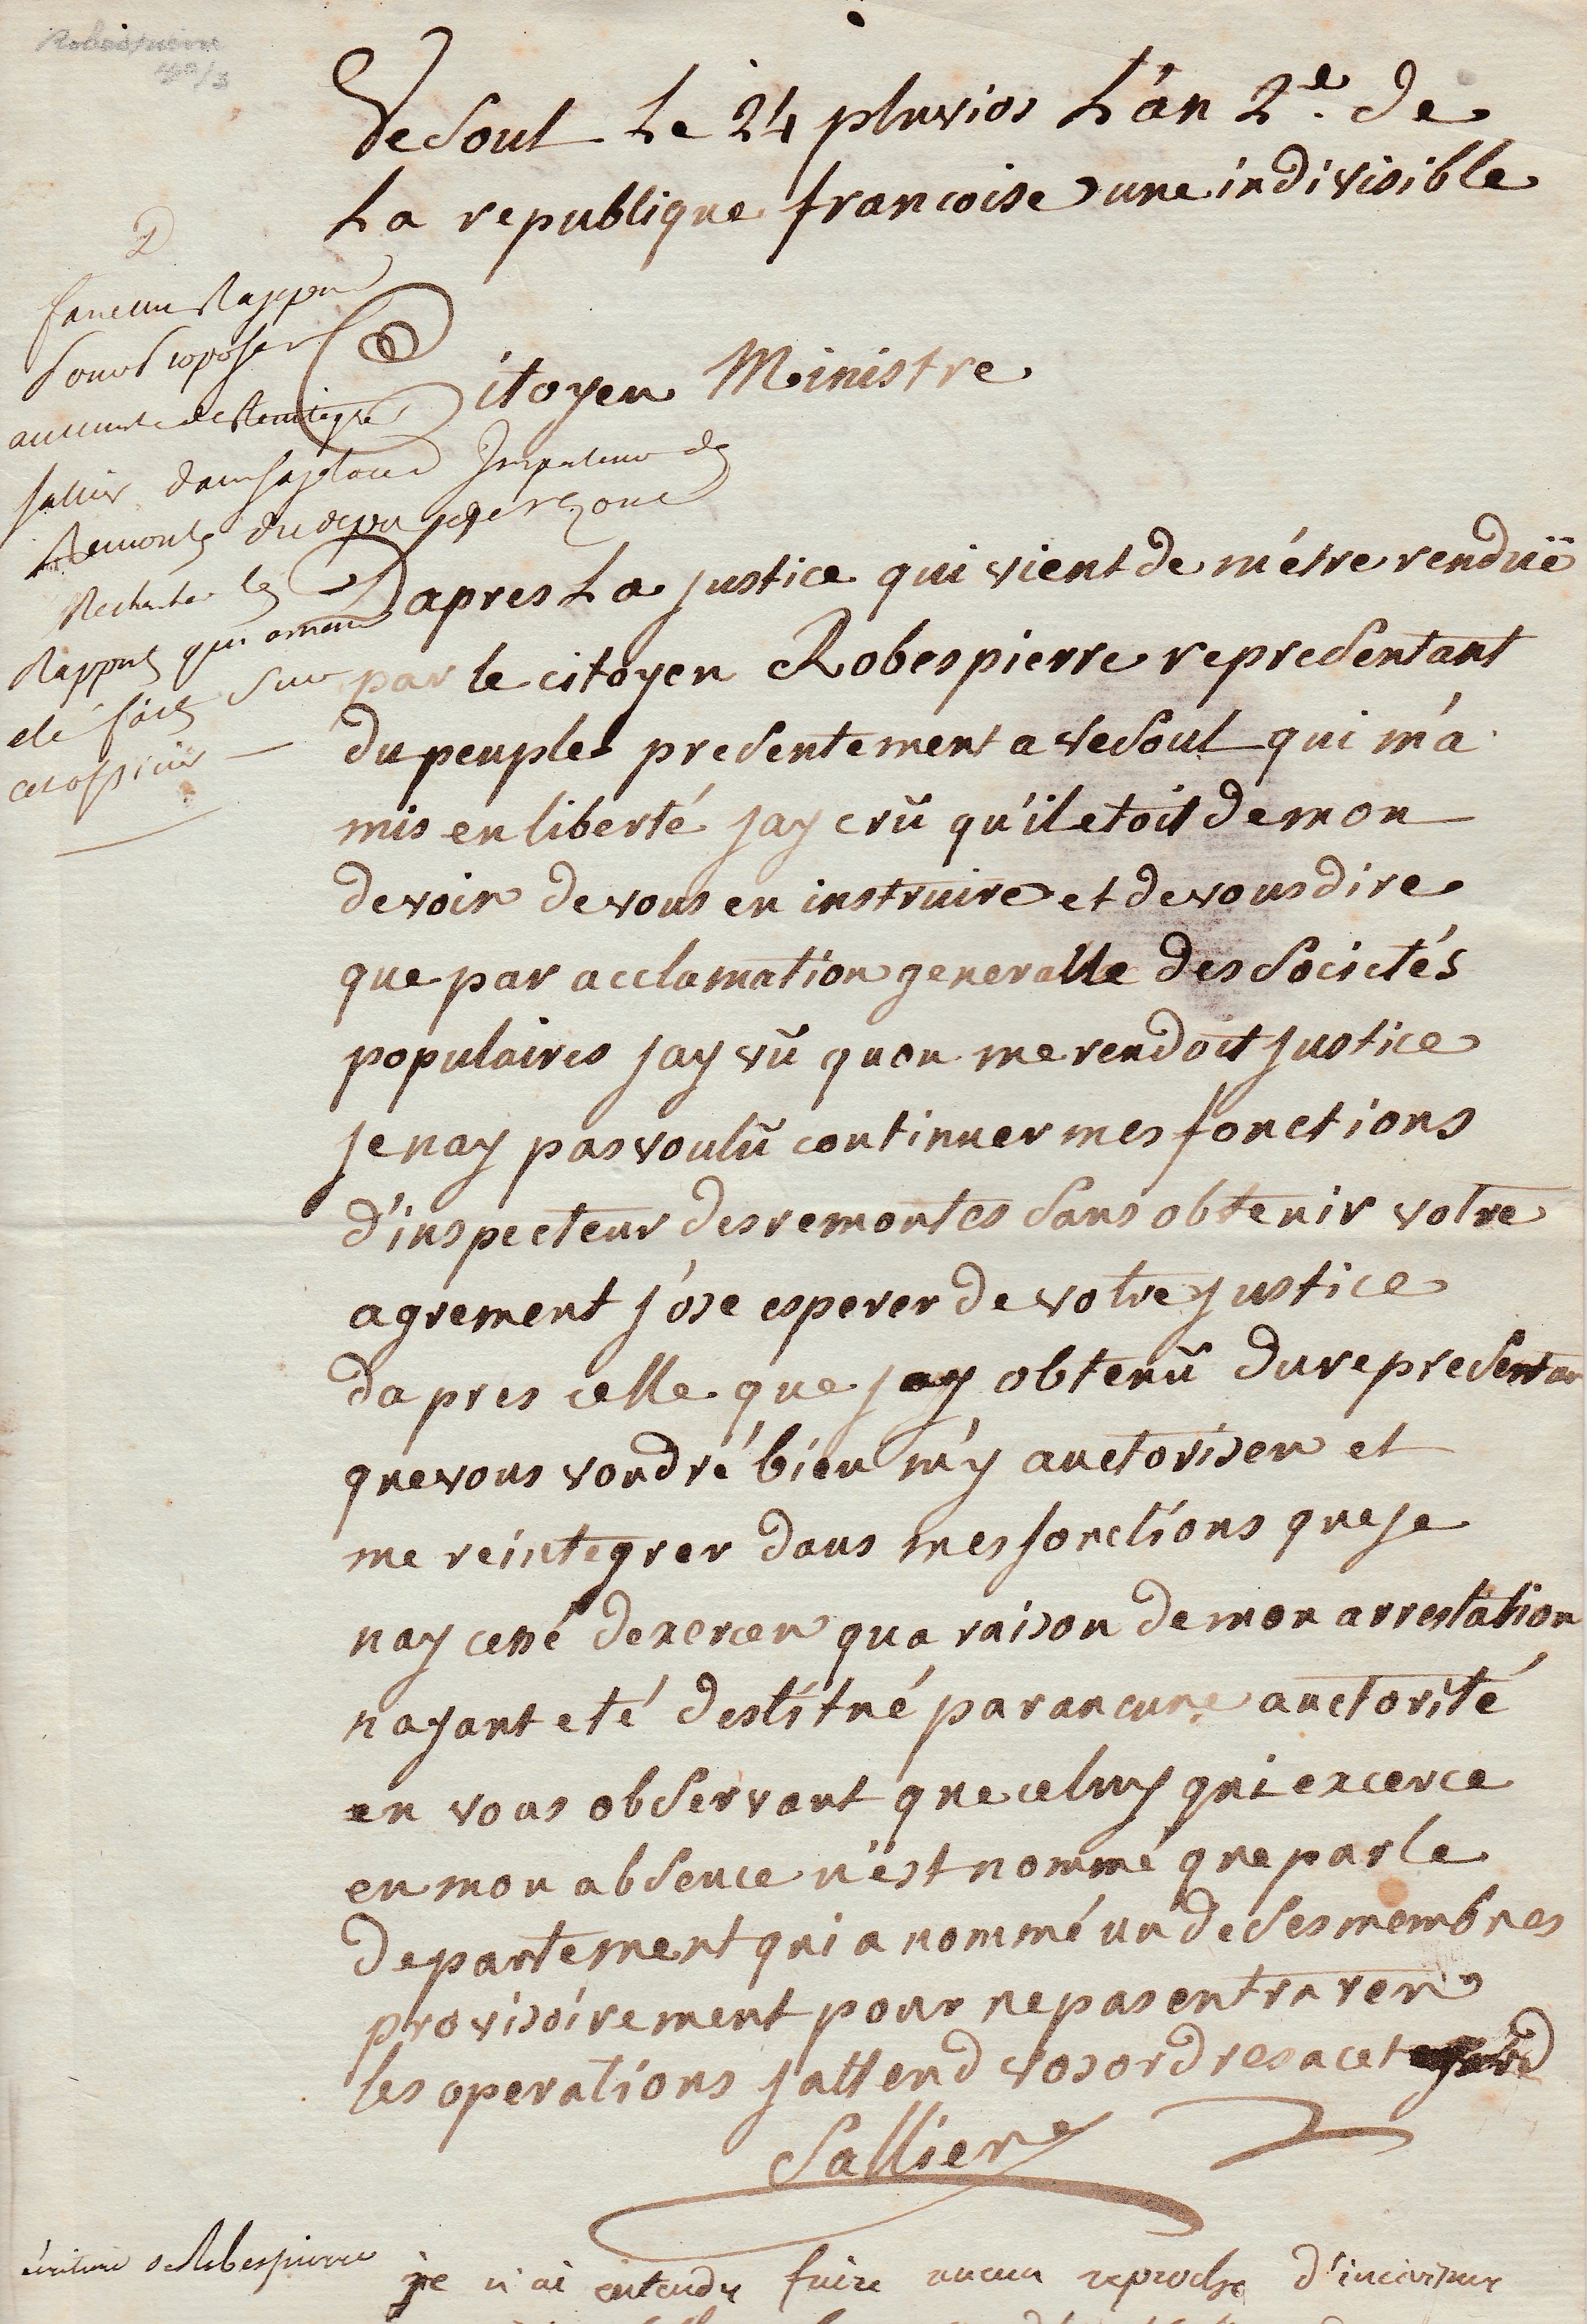 Robespierre
Vesoul Le 24 pluvios L'an 2e. de
La republique francoise une indivisible
faire un Rapport
pour proposer
au ministre de Reintegrer
Sallier dans sa place Inspecteur des
Remontes du depot de Vezoul
Rechercher les
Rapports qui ont
été faits sur
cet officier
Citoyen Ministre
Dapres La justice qui vient de m'étre renduë
par le citoyen Robespierre representant
du peuple presentement a vesoul qui m'a
mis en liberté jay crû qu'il etoit de mon
devoir de vous en instruire et de vous dire
que par acclamation generalle des Societés
populaires jay vû quon me rendoit justice
je nay pas voulû continuer mes fonctions
d'inspecteur des remontes sans obtenir votre
agrement j'ose esperer de votre justice
dapres celle que jay obtenû du representan
que vous voudré bien m'y auctoriser et
me reintegrer dans mes fonctions que je
nay cessé dexercer qua raison de mon arrestation
nayant eté destitué par aucune auctorité
en vous observant que celuy qui excerce
en mon absence n'est nommé que par le
departement qui a nommé un de ses membres
provisoirement pour ne pas entraver
les operations jattend vos ordres a cet egard
Sallier
écriture de Robespierre
je n'ai entendu faire aucun reproche d'incivisme